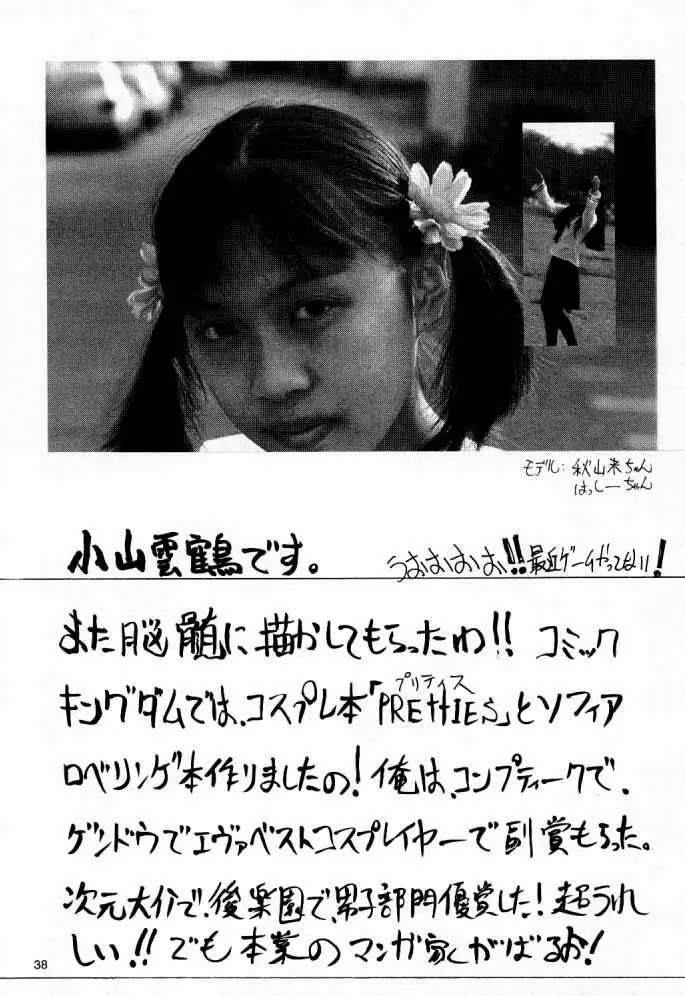 モデル:秋山来ちゃん
はっしーちゃん
小山雲鶴です。
うおおおお!!最近ゲームやってない!
また脳髄に描かしてもらったわ!!コミック
キングダムでは、コスプレ本「PRETTIES」とソフィア
プリティス
ロベリンゲ本作りましたの!俺は、コンプティークで、
ゲンドウでエヴァベストコスプレイヤーで副賞もらった。
次元大介で、後楽園で、男子部門優賞した!超うれ
しい!!でも本業のマンガ家もがんばるお!
38